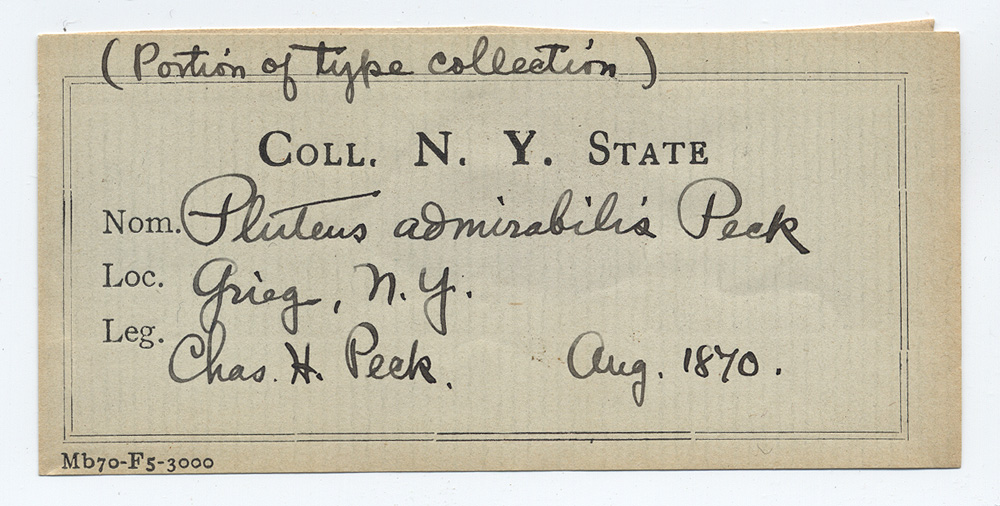 (Portion of type collection)
COLL. N. Y. STATE
Nom. Pluteus admirabilis Peck
Loc. Grieg, N.Y.
Leg. Chas. H. Peck. Aug. 1870.
Mb70-F5-3000